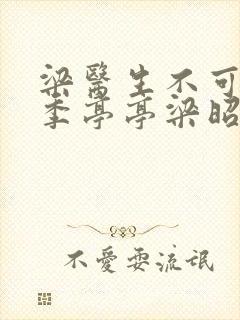 梁醫生不可
季亭亭梁昭
不愛耍流氓